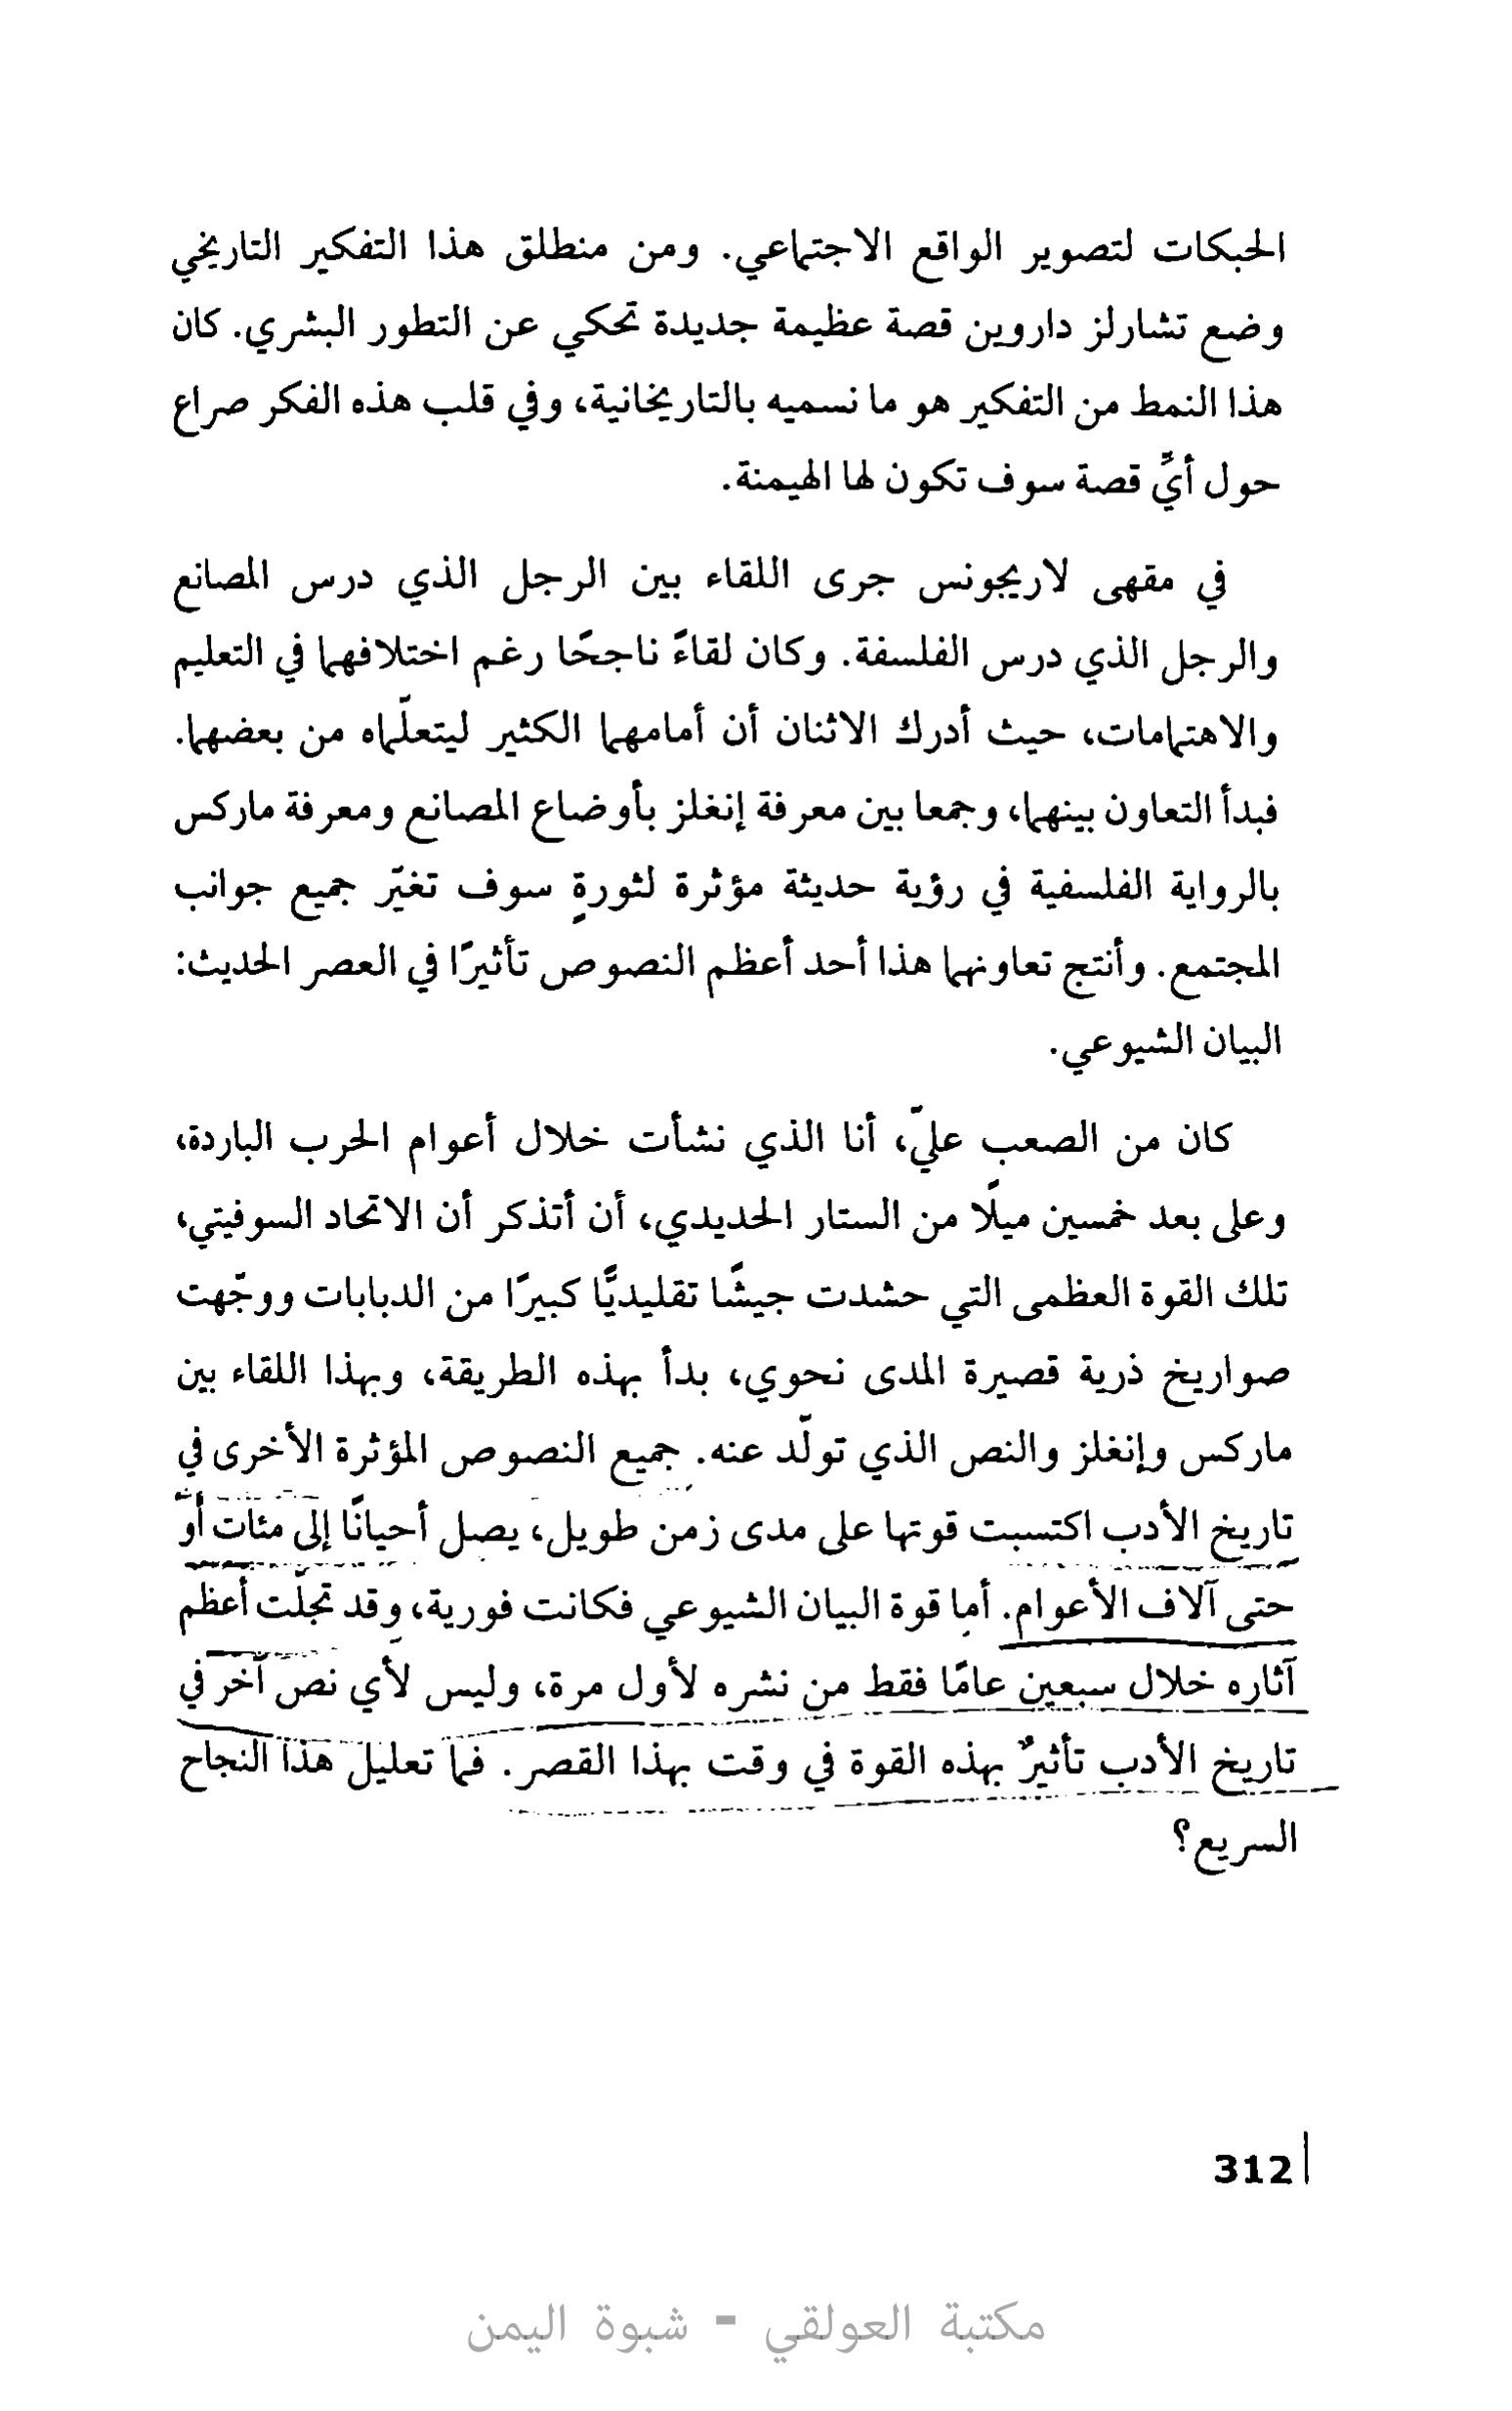 الحبكات لتصوير الواقع الاجتماعي. ومن منطلق هذا التفكير التاريخي
وضع تشارلز داروين قصة عظيمة جديدة تحكي عن التطور البشري. كان
هذا النمط من التفكير هو ما نسميه بالتاريخانية، وفي قلب هذه الفكر صراع
حول أيِّ قصة سوف تكون لها الهيمنة.
في مقهى لاريجونس جرى اللقاء بين الرجل الذي درس المصانع
والرجل الذي درس الفلسفة. وكان لقاءً ناجحًا رغم اختلافهما في التعليم
والاهتمامات، حيث أدرك الاثنان أن أمامهما الكثير ليتعلّماه من بعضهما.
فبدأ التعاون بينهما، وجمعا بين معرفة إنغلز بأوضاع المصانع ومعرفة ماركس
بالرواية الفلسفية في رؤية حديثة مؤثرة لثورةٍ سوف تغيّر جميع جوانب
المجتمع. وأنتج تعاونهما هذا أحد أعظم النصوص تأثيرًا في العصر الحديث:
البيان الشيوعي.
كان من الصعب عليّ، أنا الذي نشأت خلال أعوام الحرب الباردة،
وعلى بعد خمسين ميلًا من الستار الحديدي، أن أتذكر أن الاتحاد السوفيتي،
تلك القوة العظمى التي حشدت جيشًا تقليديًّا كبيرًا من الدبابات ووجّهت
صواريخ ذرية قصيرة المدى نحوي، بدأ بهذه الطريقة، وبهذا اللقاء بين
ماركس وإنغلز والنص الذي تولّد عنه. جميع النصوص المؤثرة الأخرى في
تاريخ الأدب اكتسبت قوتها على مدى زمن طويل، يصل أحيانًا إلى مئات أو
حتى آلاف الأعوام. أما قوة البيان الشيوعي فكانت فورية، وقد تجلّت أعظم
آثاره خلال سبعين عامًا فقط من نشره لأول مرة، وليس لأي نص آخر في
تاريخ الأدب تأثيرٌ بهذه القوة في وقت بهذا القصر. فما تعليل هذا النجاح
السريع؟
312
مكتبة العولقي - شبوة اليمن